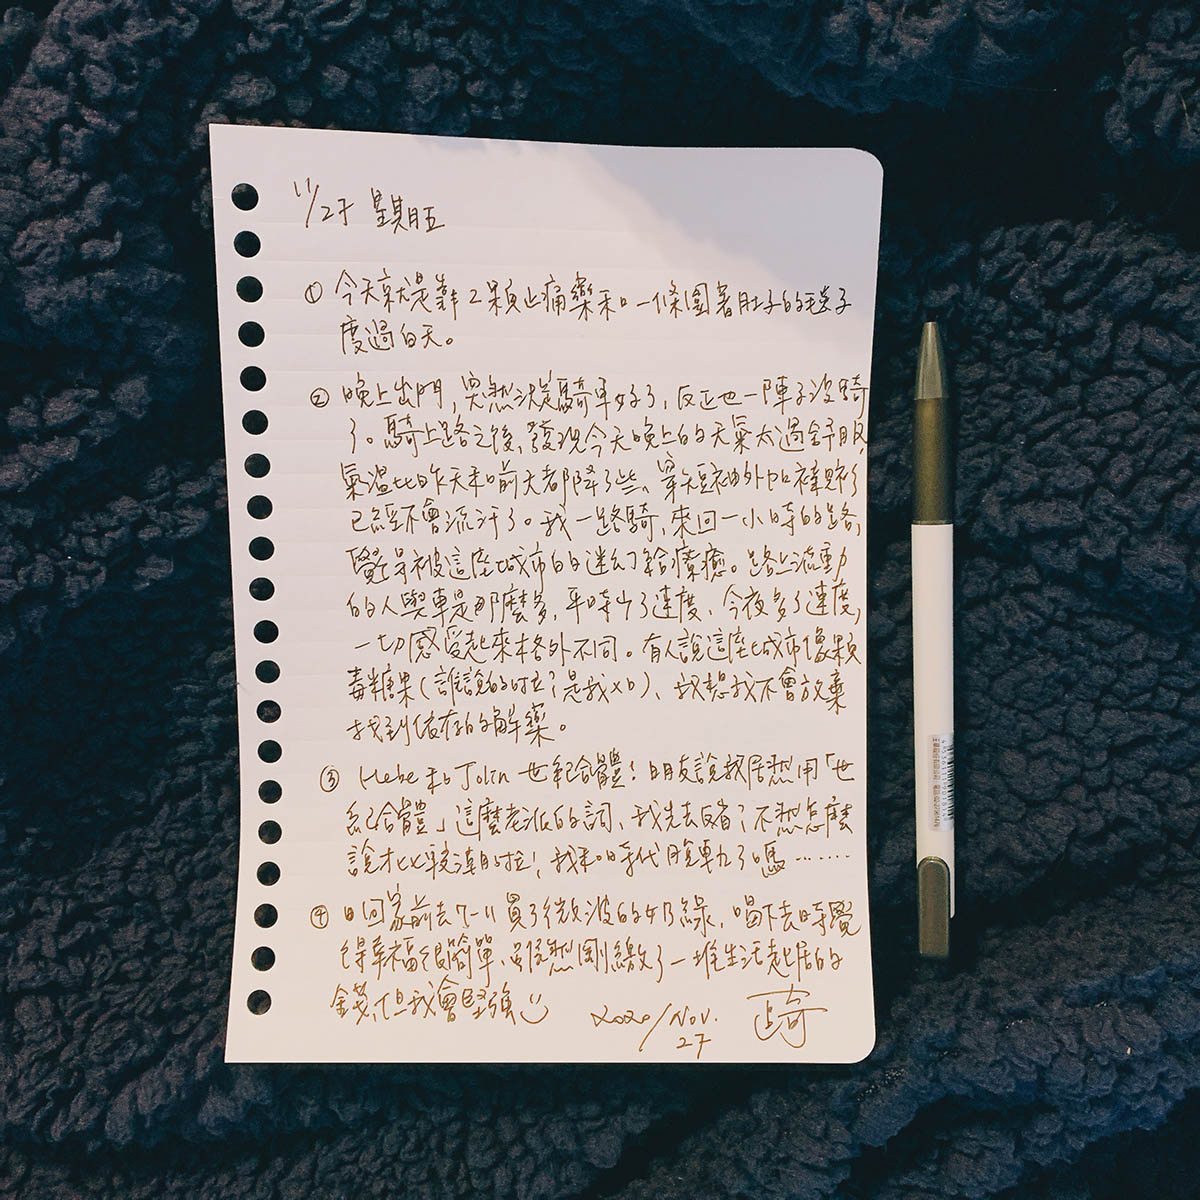 11/27 星期五
① 今天就是靠2顆止痛藥和一條圍著肚子的毯子
度過白天。
② 晚上出門，突然決定騎車好了，反正也一陣子沒騎
了。騎上路之後，發現今天晚上的天氣太過舒服，
氣溫比昨天和前天都降了些、穿短袖外加褲
已經不會流汗了。我一路騎，來回一小時的路，
覺得被這座城市的迷幻給療癒。路上流動
的人與車是那麼多，平時少了速度、今夜多了速度，
一切感受起來格外不同。有人說這座城市像顆
毒糖果（誰說的啦？是我XD）、我想我不會放棄
找到依存的解藥。
③ Hebe和Jolin世紀合體！朋友說我居然用「世
紀合體」這麼老派的詞、我先去反省了不然怎麼
說才比較潮啦！我和時代脫軌了嗎……
④ 回家前去7-11買了微波的奶綠，喝下去時覺
得幸福很簡單、雖然剛繳了一堆生活起居的
錢、但我會堅強
2020/Nov.
27